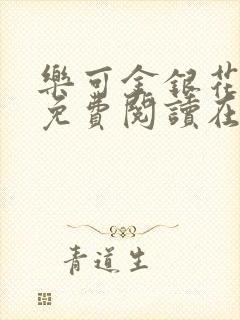 樂可金銀花
免費閱讀在
青道生